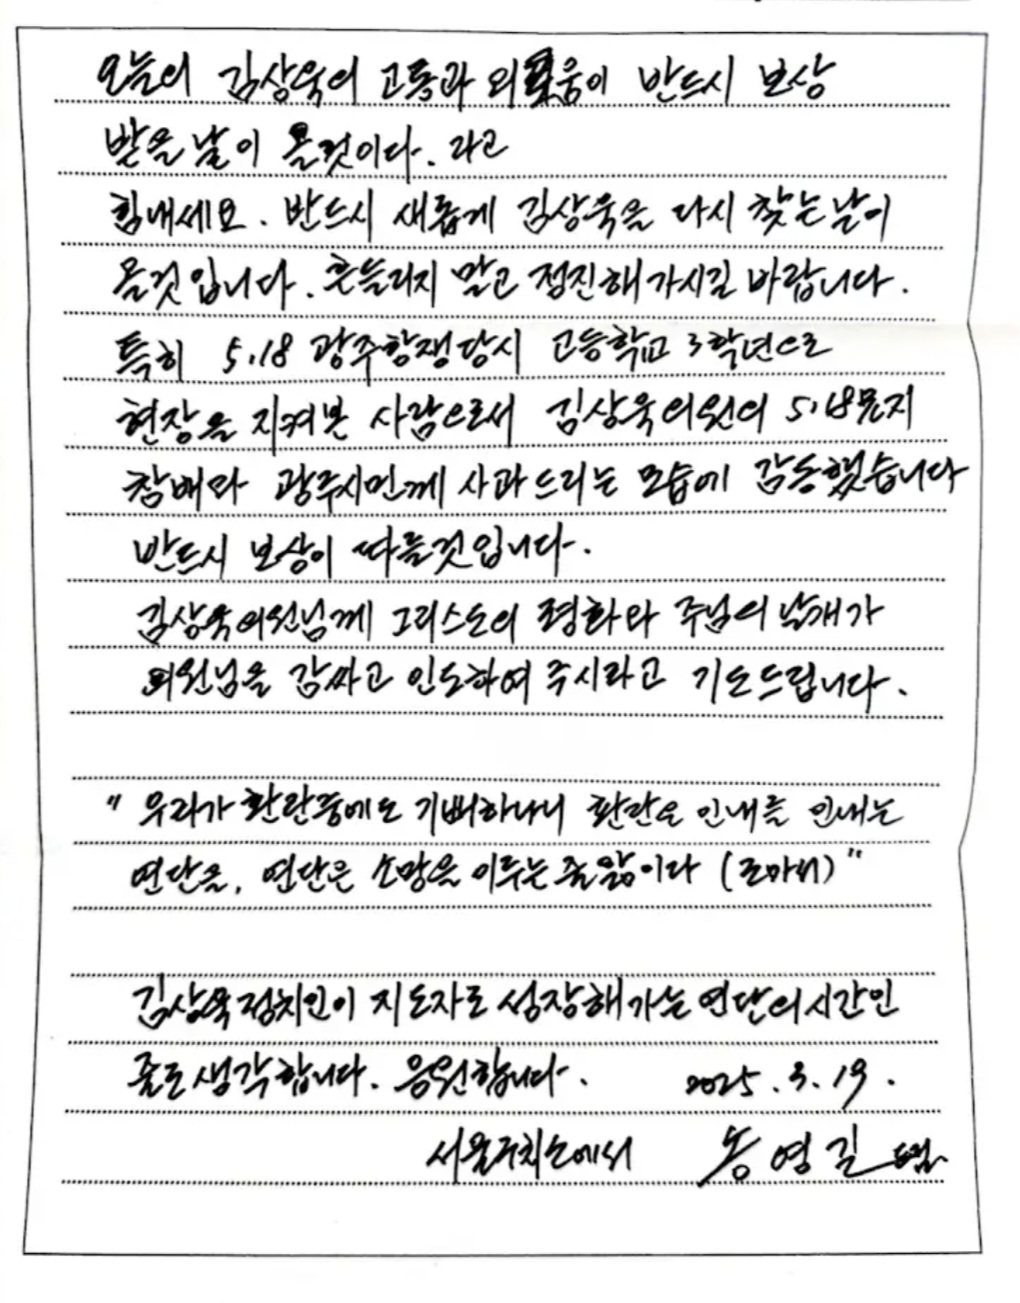 오늘의 김상욱의 고통과 외로움이 반드시 보상
받을 날이 올것이다. 라고
힘내세요. 반드시 새롭게 김상욱을 다시 찾는 날이
올것입니다. 흔들리지 말고 정진해 가시길 바랍니다.
특히 5.18 광주항쟁당시 고등학교 3학년으로
현장을 지켜본 사람으로써 김상욱의원의 5.18묘지
참배와 광주시민께 사과드리는 모습에 감동했습니다
반드시 보상이 따를것입니다.
김상욱의원님께 그리스도의 평화와 주님의 날개가
의원님을 감싸고 인도하여 주시라고 기도드립니다.
" 우리가 환란중에도 기뻐하나니 환란은 인내를 인내는
연단을, 연단은 소망을 이루는 줄 앎이다 (로마서)"
김상욱정치인이 지도자로 성장해 가는 연단의 시간인
줄로 생각합니다. 응원합니다. 2025. 3. 19.
서울구치소에서 송영길 드림